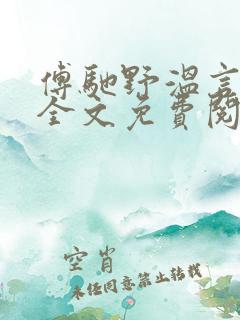 傅馳野溫言
全文免費閱
空肖
未经同意禁止转载